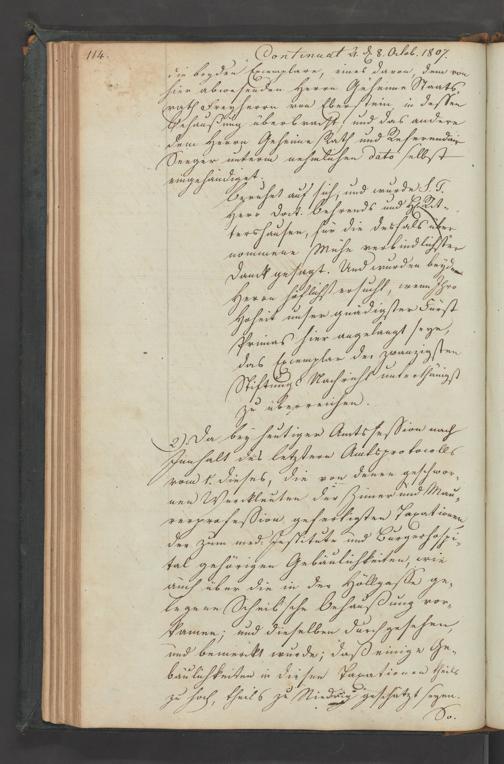 114.
Continuat. d. 8. Octob. 1807.
die beyden Exemplare, eines davon, dem von
hier abwesenden Herrn Geheime Staats
rath Freyherrn von Eberstein, in dessen
Behaußung überbracht, und das andere
dem Herrn Geheime Rath und Referendair
Seeger unterm nehmlichen dato selbst
eingehändiget.
Beruhet auf sich, und wurde S. T.
Herr Doct. Behrends und H. Rit-
tershausen, für die desfals über
nommene Mühe verbindlichster
Danck gesagt. Und wurden beyde
Herrn höflichst ersucht, wenn Ihro
Hoheit unser gnädigster Fürst
Primas hier angelangt seye,
das Exemplar der zwanzigsten
Stiftungs Nachricht unterthänigst
zu überreichen.
2.) Da bey heutiger Amtssession nach
Innhalt des letztern Amtsprotocolls
vom 1. dieses, die von denen geschwor-
nen Werckleuten der Zimer und Mau-
rerprofession gefertigten Taxationen
der zum med. Institute und Burgerhospi-
tal gehörigen Gebäulichkeiten, wie
auch über die in der Höllgasse ge-
legene Scheib'sche Behaußung vor-
kamen; und dieselben durchgesehen,
und bemerckt wurde; daß einige Ge-
bäulichkeiten in diesen Taxationen theils
zu hoch, theils zu Niedrig geschätzt seyen.
So.